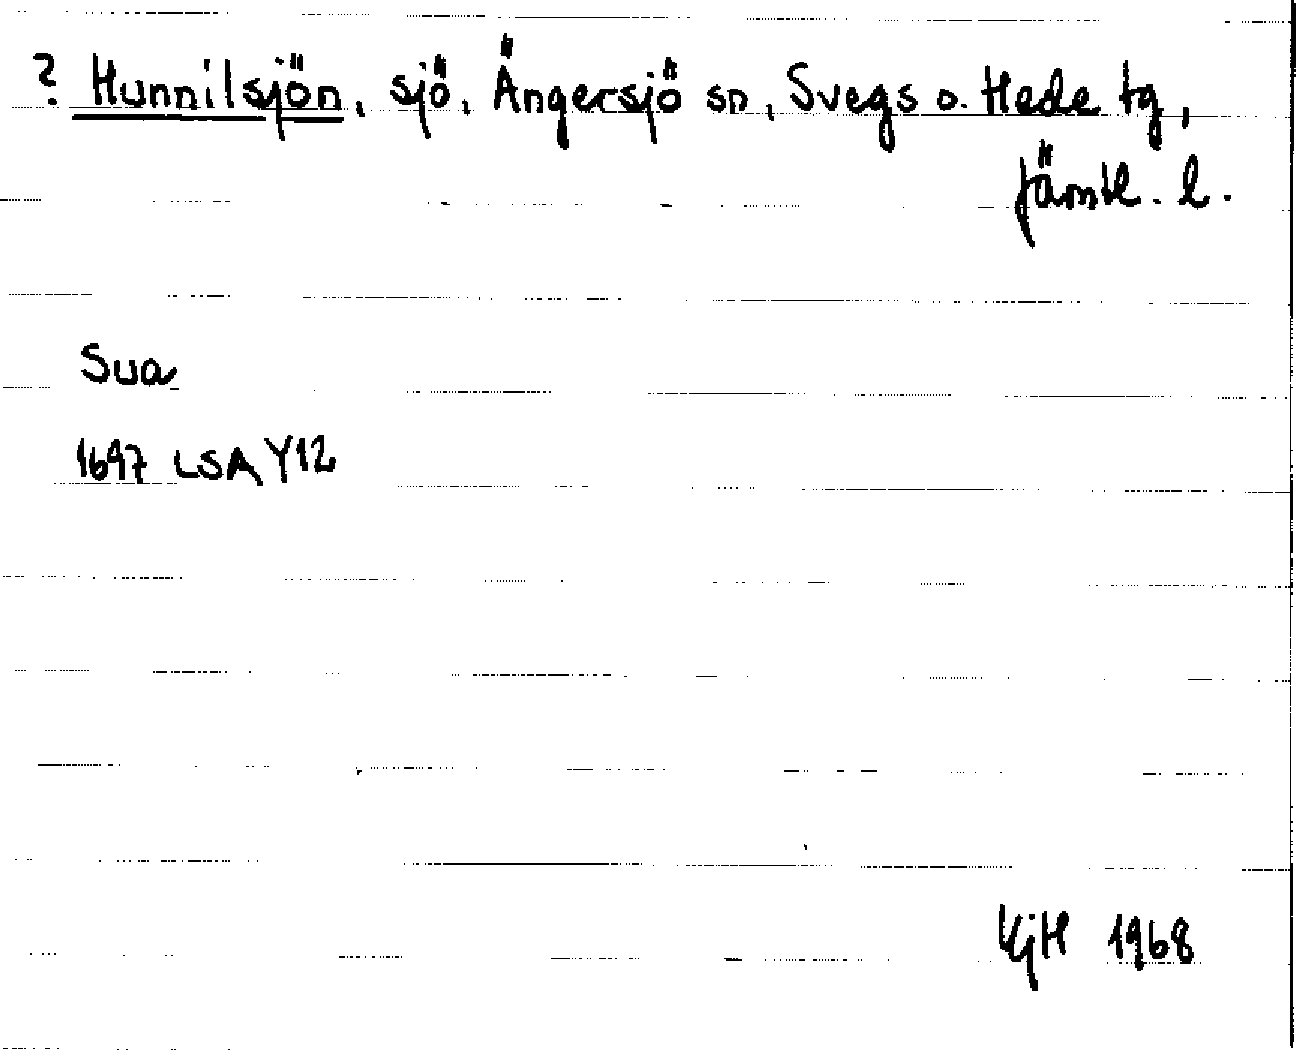 ? Hunnilsjön, sjö, Ängersjö sn, Svegs o. Hede tg,
Jämtl. l.
Sua
1697 LSA Y12
KjH 1968